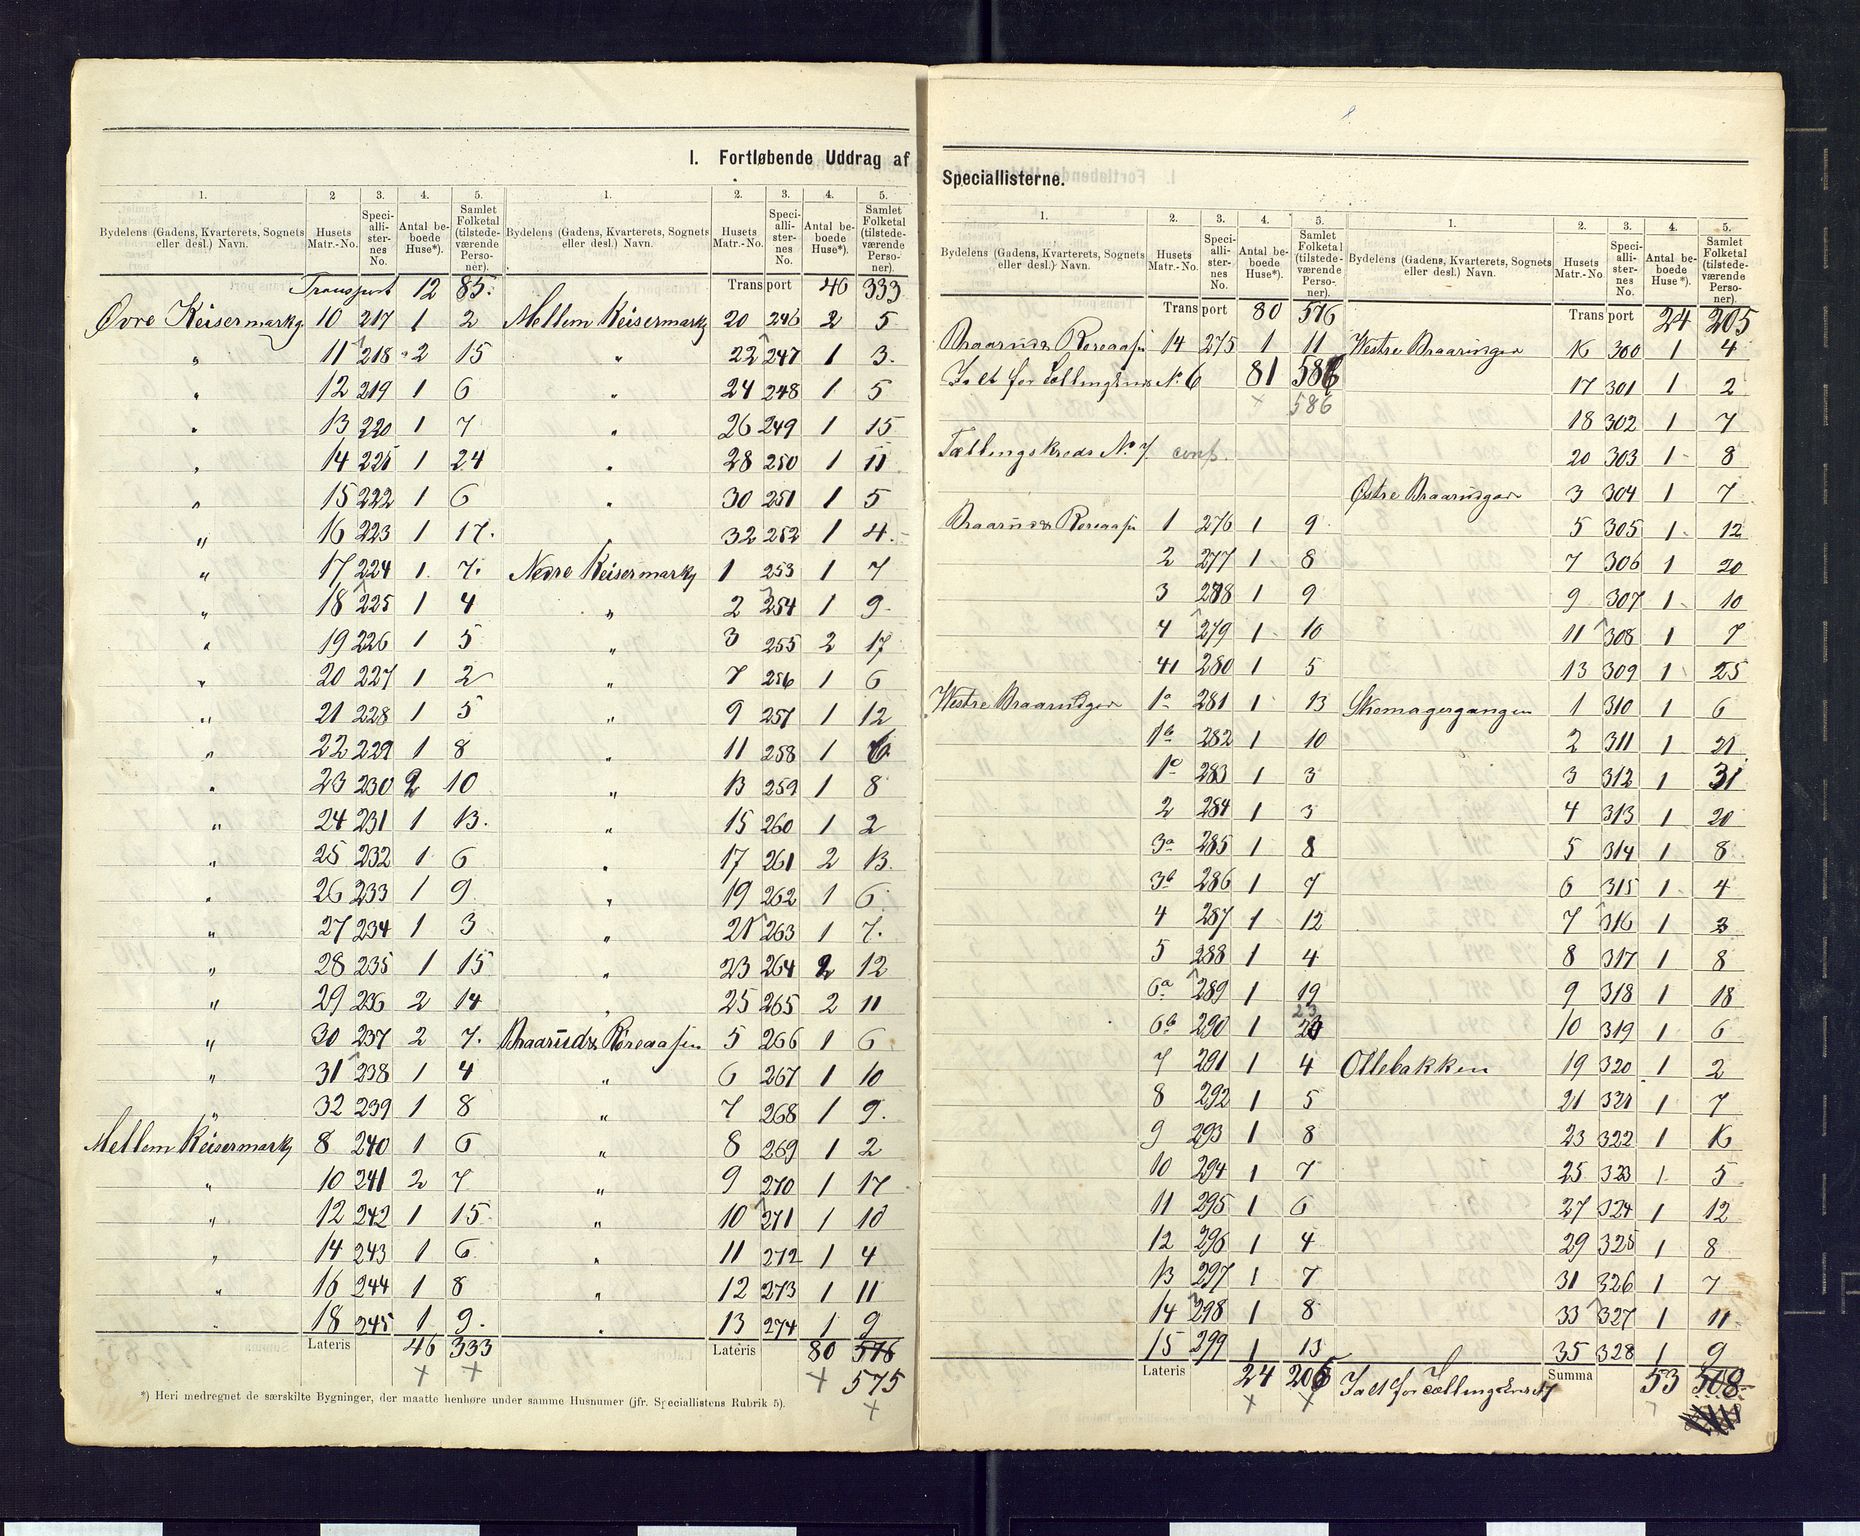 I. Fortløbende Uddrag af
1. 2 3. 4. 5.
Bydelens (Gadens, Kvarterets, Sognets eller desl.) Navn. Husets Matr.-No. Speciallisternes No. Antal beboede Huse*). Samlet Folketal (tilstedeværende Personer).
Transport 12 85.
Øvre Keisermarkg 10 217 1 2
" 11 218 2 15
" 12 219 1 6
" 13 220 1 7
" 14 221 1 24
" 15 222 1 6
" 16 223 1 17.
" 17 224 1 7.
" 18 225 1 4
" 19 226 1 5
" 20 227 1 2
" 21 228 1 5
" 22 229 1 8
" 23 230 2 10
" 24 231 1 13.
" 25 232 1 6
" 26 233 1 9
" 27 234 1 3
" 28 235 1 15
" 29 236 2 14
" 30 237 2 7.
" 31 238 1 4
" 32 239 1 8
Mellem Keisermarkg 8 240 1 6
" 10 241 2 7
" 12 242 1 15
" 14 243 1 6
" 16 244 1 8
" 18 245 1 9.
Lateris 46 333
1. 2. 3. 4. 5.
Bydelens (Gadens, Kvarterets, Sognets eller desl.) Navn. Husets Matr.-No. Speciallisternes No. Antal beboede Huse*). Samlet Folketal (tilstedeværende Personer).
Transport 46 333
Mellem Keisermarkg 20 246 2 5
" 22 247 1 3.
" 24 248 1 5
" 26 249 1 15
" 28 250 1 11
" 30 251 1 5
" 32 252 1 4.
Nedre Keisermarkg 1 253 1 7
" 2 254 1 9
" 3 255 2 17
" 7 256 1 6
" 9 257 1 12
" 11 258 1 6
" 13 259 1 8
" 15 260 1 2
" 17 261 2 13.
" 19 262 1 6
" 21 263 1 7.
" 23 264 2 12
" 25 265 2 11
Braaruds 5 266 1 6
" 6 267 1 10
" 7 268 1 9.
" 8 269 1 2
" 9 270 1 17
" 10 271 1 10
" 11 272 1 4
" 12 273 1 11
" 13 274 1 9
Lateris 80 576
575
*) Heri medregnet de særskilte Bygninger, der maatte henhøre under samme Husnumer (jfr. Speciallistens Rubrik 5).
Speciallisterne.
1. 2. 3. 4. 5.
Bydelens (Gadens, Kvarterets, Sognets eller desl.) Navn. Husets Matr.-No. Speciallisternes No. Antal beboede Huse*). Samlet Folketal (tilstedeværende Personer).
Transport 80 576
Braaruds 14 275 1 11
Ialt for Tællingskreds No 6 81
586
Tællingskreds No 7
Braaruds 1 276 1 9
2 277 1 8
3 278 1 9
4 279 1 10
41 280 1 5
Westre Braarudgd 1a 281 1 13
1b 282 1 10
1c 283 1 3
2 284 1 3
3a 285 1 8
3b 286 1 7
4 287 1 12
5 288 1 4
6a 289 1 19
23
6b 290 1
7 291 1 4
8 292 1 5
9 293 1 8
10 294 1 7
11 295 1 6
12 296 1 4
13 297 1 7
14 298 1 8
15 299 1 13
Lateris 24
1. 2. 3. 4. 5.
Bydelens (Gadens, Kvarterets, Sognets eller desl.) Navn. Husets Matr.-No. Speciallisternes No. Antal beboede Huse*). Samlet Folketal (tilstedeværende Personer).
Transport 24 205
Westre Braarudgd 16 300 1 4
17 301 1 2
18 302 1 7
20 303 1 8
Østre Braarudgd 3 304 1 7
5 305 1 12
7 306 1 20
9 307 1 10
11 308 1 7
13 309 1 25
Skomagergangen 1 310 1 6
2 311 1 21
3 312 1 31
4 313 1 20
5 314 1 8
6 315 1 4
7 316 1 3
8 317 1 8
9 318 1 18
10 319 1 6
Ollebakken 19 320 1 2
21 321 1 7
23 322 1 16
25 323 1 5
27 324 1 12
29 325 1 8
31 326 1 7
33 327 1 11
35 328 1 9
Ialt for Tællingskreds 7 Summa 53 508